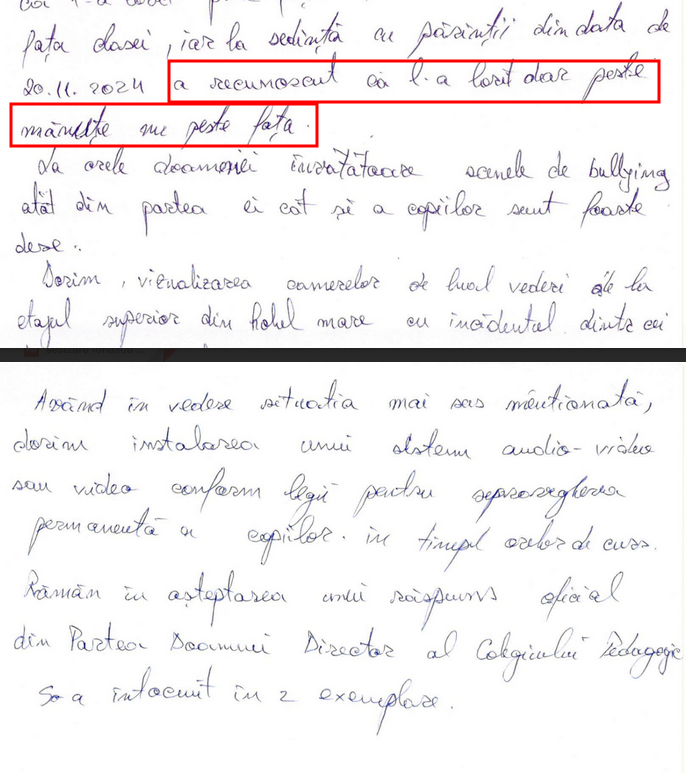 fața clasei, iar la sedință cu părinții din data de
20.11.2024 a recunoscut că l-a lovit doar peste
mănuțe nu peste față.
La orele doamnei învățătoare scenele de bullying
atât din partea ei cât și a copiilor sunt foarte
dese.
Dorim, vizualizarea camerelor de luat vederi de la
etajul superior din holul mare cu incidentul dintre cei
Având în vedere situatia mai sus mentionată,
dorim instalarea unui sistem audio-video
sau video conform legii pentru supravegherea
permanentă a copiilor. în timpul orelor de curs.
Rămân în așteptarea unui răspuns oficial
din Partea Doamnei Director al Colegiului Pedagogic
S-a întocmit în 2 exemplare.